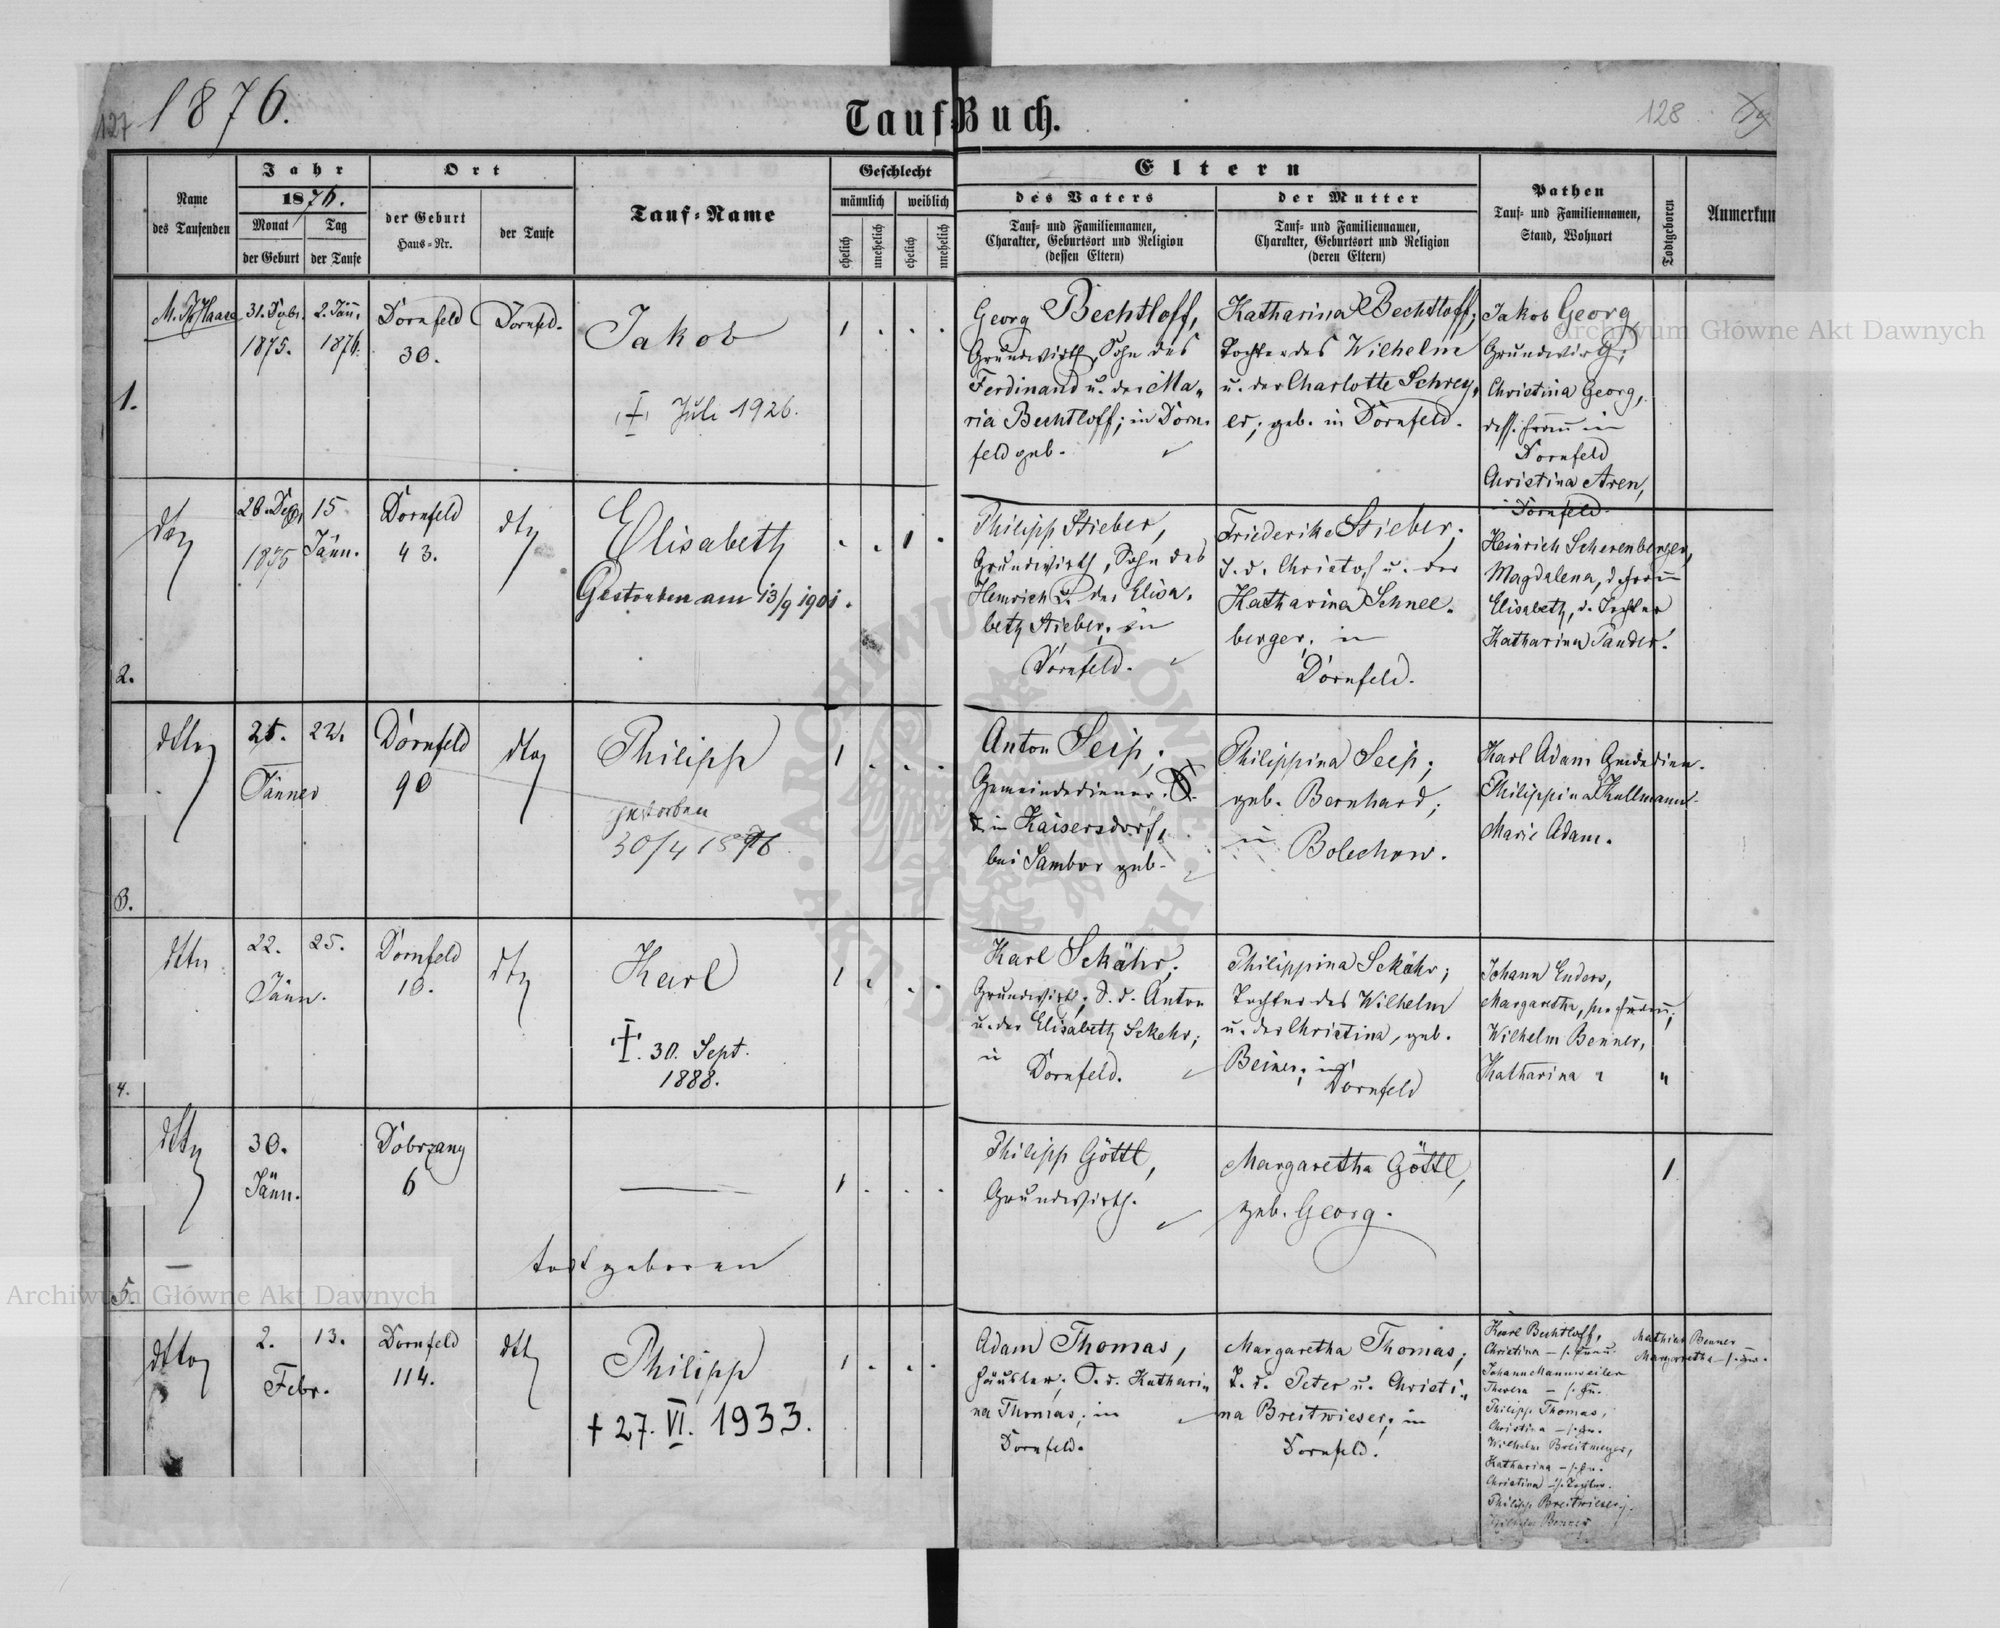 127
1876.
Tauf-Buch.
128
Name
des Taufenden
Jahr
1876.
Monat
Tag
der Geburt
der Taufe
Ort
der Geburt
Haus-Nr.
der Taufe
Tauf-Name
Geschlecht
männlich
weiblich
ehelich
unehelich
ehelich
unehelich
Eltern
des Vaters
Tauf- und Familiennamen,
Charakter, Geburtsort und Religion
(dessen Eltern)
der Mutter
Tauf- und Familiennamen,
Charakter, Geburtsort und Religion
(deren Eltern)
Pathen
Tauf- und Familiennamen,
Stand, Wohnort
Todtgeboren
Anmerkun
1.
Haase
31. Dezbr.
1875.
2. Jän.
1876.
Dornfeld
30.
Dornfed.
Jakob
Juli 1926.
1
Georg Bechtloff,
Grundwirth, Sohn des
Ferdinand u. der Ma-
ria Bechtloff; in Dorn-
feld geb.
Katharina Bechtloff;
Tochter des Wilhelm
u. der Charlotte Schrey-
er; geb. in Dornfeld.
Jakob Georg,
Grundwirth;
Christina Georg,
dess. Frau in
Dornfeld
Christina Aren,
Dornfeld.
2.
dto
28. Dez.
1875
15
Jänn.
Dornfeld
43.
dto
Elisabeth
Gestorben am 13/9 1901.
1
Philipp Stieber,
Grundwirth, Sohn des
Heinrich u. der Elisa-
beth Stieber; in
Dornfeld.
Friederike Stieber;
T. d. Christof u. der
Katharina Schnee-
berger; in
Dornfeld.
Heinrich Scherenberger,
Magdalena, d. Frau
Elisabeth, d. Tochter
Katharina Pander.
3.
dtto
21.
Jänner
22.
Dornfeld
90
dto
Philipp
gestorben
30/4 1876
1
Anton Seip;
Gemeindediener;
in Kaisersdorf,
bei Sambor geb.
Philippina Seip;
geb. Bernhard;
in
Bolechow.
Karl Adam
Philippina Kullmann.
Marie Adam.
4.
dtto
22.
Jänn.
25.
Dornfeld
10.
dto
Karl
30. Sept.
1888.
1
Karl Sekähr;
Grundwirt; S. d. Anton
u. der Elisabeth Sekehr;
in
Dornfeld.
Philippina Sekähr;
Tochter des Wilhelm
u. der Christina, geb.
Beiner; in
Dornfeld
Johann Enders,
Margaretha, Frau;
Wilhelm Benner,
Katharina "
"
5.
dtto
30.
Jänn.
Dobrzany
6
1
todtgeboren
Philipp Göttl,
Grundwirth.
Margaretha Göttl,
geb. Georg.
1
dtto
2.
Febr.
13.
Dornfeld
114.
dtto
Philipp
+ 27. VI. 1933.
1
Adam Thomas,
Häusler; S. d. Kathari-
na Thomas; in
Dornfeld.
Margaretha Thomas;
T. d. Peter u. Christi-
na Breitwieser; in
Dornfeld.
Karl Bechtloff,
Christina – s. Frau.
Johann Mannweiler
Theresa – s. Fr.
Philipp Thomas,
Christina – s. Fr.
Wilhelm Breitmeyer,
Katharina – s. Fr.
Christina – s. Tochter.
Philipp Breitwieser j.
Wilhelm Benner
Mathias Benner
Margaretha – s. Fr.
Archiwum Główne Akt Dawnych
Archiwum Główne Akt Dawnych